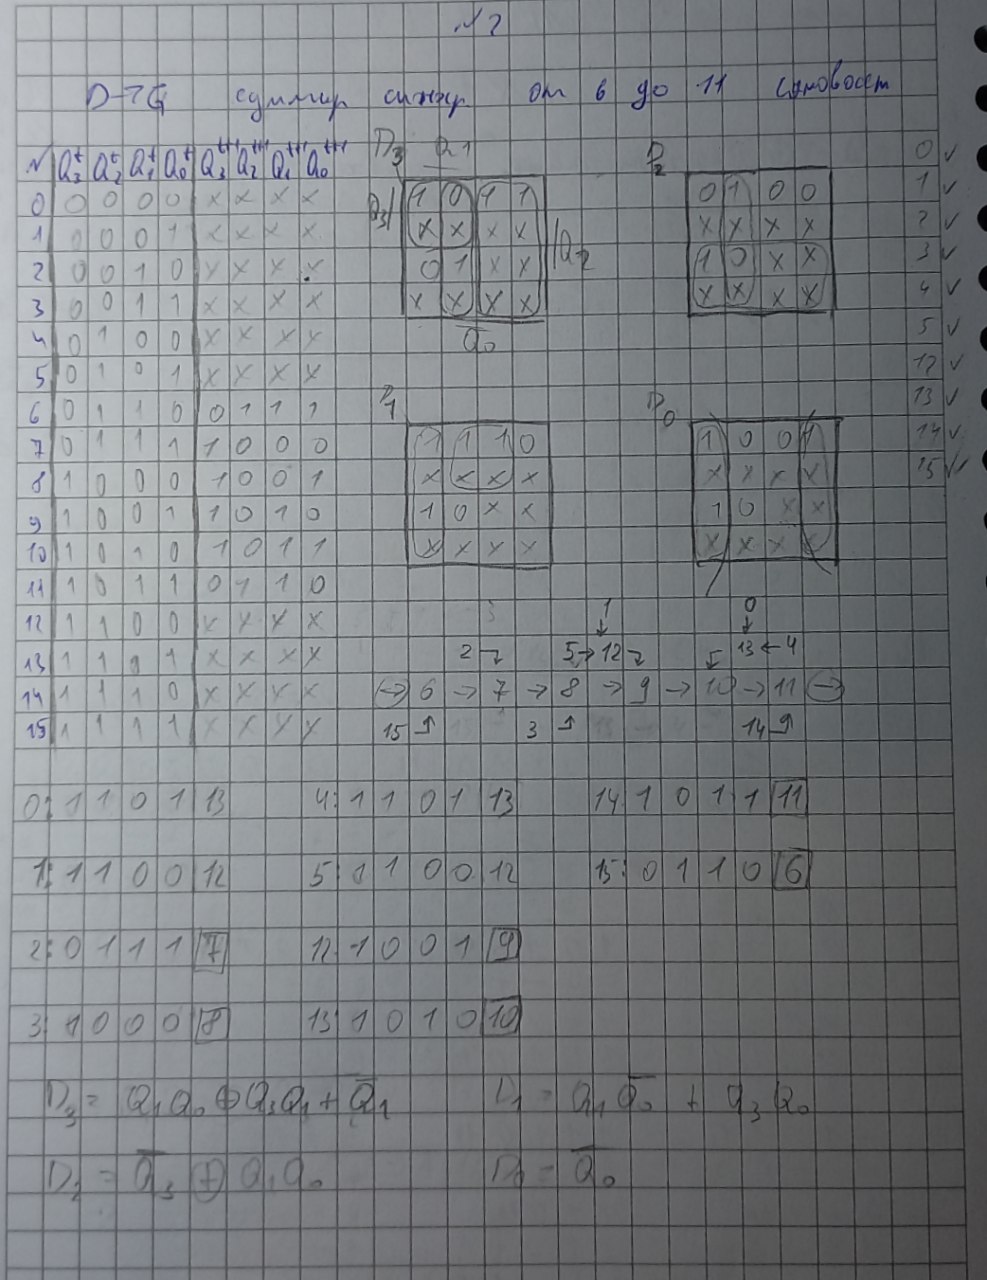 № 2
D-ТG суммир синхр от 6 до 11 самовосст
№ Q₃ᵗ Q₂ᵗ Q₁ᵗ Q₀ᵗ Q₃ᵗ⁺¹ Q₂ᵗ⁺¹ Q₁ᵗ⁺¹ Q₀ᵗ⁺¹
0 0 0 0 0 x x x x
1 0 0 0 1 x x x x
2 0 0 1 0 x x x x
3 0 0 1 1 x x x x
4 0 1 0 0 x x x x
5 0 1 0 1 x x x x
6 0 1 1 0 0 1 1 1
7 0 1 1 1 1 0 0 0
8 1 0 0 0 1 0 0 1
9 1 0 0 1 1 0 1 0
10 1 0 1 0 1 0 1 1
11 1 0 1 1 0 1 1 0
12 1 1 0 0 x x x x
13 1 1 0 1 x x x x
14 1 1 1 0 x x x x
15 1 1 1 1 x x x x
D₃ Q1
Q₃ 1 0 1 1
x x x x Q₂
0 1 x x
x x x x
Q₀
D₂
0 1 0 0
x x x x
1 0 x x
x x x x
D₁
1 1 1 0
x x x x
1 0 x x
x x x x
D₀
1 0 0 1
x x x x
1 0 x x
x x x x
0 ✓
1 ✓
2 ✓
3 ✓
4 ✓
5 ✓
12 ✓
13 ✓
14 ✓
15 ✓
1 0
2 5→12 13←4
→ 6 → 7 → 8 → 9 → 10 → 11 →
15 3 14
0: 1 1 0 1 13 4: 1 1 0 1 13 14 1 0 1 1 11
1: 1 1 0 0 12 5: 1 1 0 0 12 15: 0 1 1 0 6
2: 0 1 1 1 7 12: 1 0 0 1 9
3: 1 0 0 0 8 13: 1 0 1 0 10
D₃ = Q₁Q₀ ⊕ Q₃Q₁ + Q̅₁ D₁ = Q₁Q̅₀ + Q₃Q₀
D₂ = Q̅₃ ⊕ Q₁Q₀ D₀ = Q̅₀